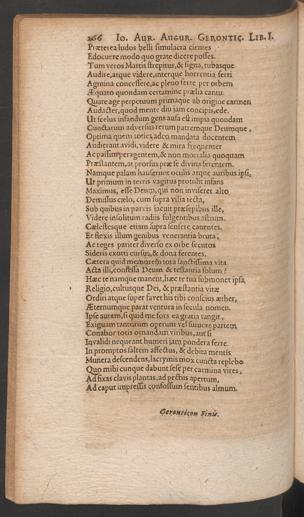 266 Io. Aur. Augur. Gerontic. Lib. I.
Præterea ludos belli simulacra cientes
Edocuere modo quo grate dicere posses.
Tum veros Martis strepitus, & signa, tubasque
Audire, atque videre, interque horrentia ferri
Agmina concessere, ac pleno ferre per orbem
Æquato quondam certamine prælia cantu.
Quare age perpetuum primaque ab origine carmen
Audacter, quod mente diu jam concipis, ede.
Ut scelus infandum gens ausa est impia quondam
Cunctarum adversus rerum patremque Deumque,
Optima quem toties, adeo mandata docentem
Audierant avidi, videre & mira frequenter
Ac passim peragentem, & non mortalia quoquam
Præstantem, ut prorsus præ se divina ferentem.
Namque palam hauserunt oculis atque auribus ipsi,
Ut primum in terris vagitus protulit infans
Maximus, esse Deum, qui non inviseret alto
Demissus cælo, cum supra vilia tecta,
Sub quibus in parvis jacuit præsepibus ille,
Videre insolitum radiis fulgentibus astrum.
Cælestesque etiam supra sensere canentes.
Et flexis illum genibus venerantia bruta,
Ac reges pariter diverso ex orbe secutos
Sideris exorti cursus, & dona ferentes.
Cætera quid memorem tota sanctissima vita
Acta illi, confessa Deum & testantia solum?
Hæc te namque manent, hæc te tua submonet ipsa,
Religio, cultusque Dei, & præstantia vitæ
Ordiri atque super favet his tibi conscius æther,
Æternumque parat ventura in secula nomen.
Ipse autem, si quid me fors ea gratia tangit,
Exiguam tantorum operum vel sumere partem
Conabor totis ornandam viribus, aut si
Invalidi nequeant humeri jam pondera ferre.
In promptos saltem affectus, & debita mentis
Munera descendens, lacrymis mox cuncta replebo
Quo mihi cunque dabunt sese per carmina vires,
Ad fixas clavis plantas, ad pectus apertum,
Ad caput impressis confossum sentibus almum.
Geronticon Finis.